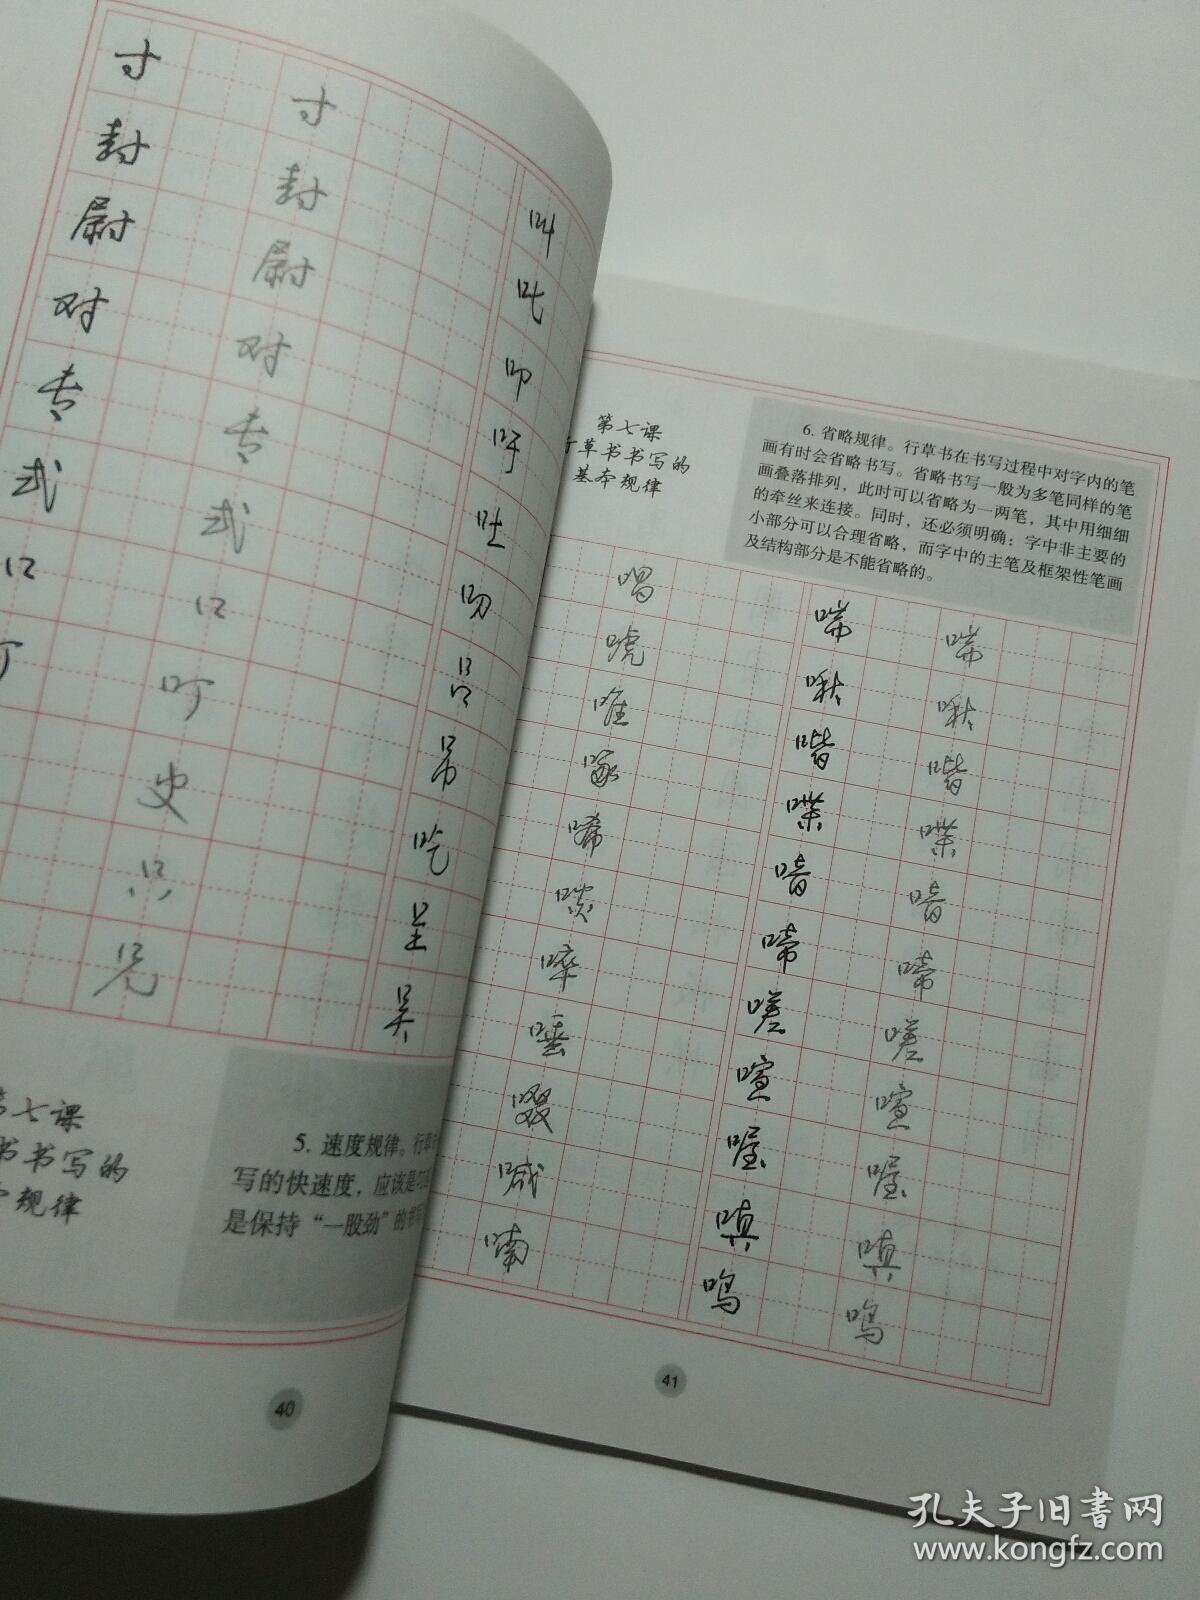 寸 寸
封 封
尉 尉
对 对
专 专
式 式
口 口
叮
史
只
兄
叫
吒
叩
吁
吐
吻
吕
吊
吃
呈
吴
七课
书书写的
规律
5. 速度规律。行草
写的快速度，应该是
是保持“一股劲”的
40
第七课
行草书书写的
基本规律
6. 省略规律。行草书在书写过程中对字内的笔
画有时会省略书写。省略书写一般为多笔同样的笔
画叠落排列，此时可以省略为一两笔，其中用细细
的牵丝来连接。同时，还必须明确：字中非主要的
小部分可以合理省略，而字中的主笔及框架性笔画
及结构部分是不能省略的。
唱
唬
唯
啄
唏
啖
啐
唾
啜
喊
喃
喘 喘
啾 啾
喈 喈
喋 喋
喑 喑
啼 啼
嗟 嗟
喧 喧
喔 喔
嗔 嗔
鸣 鸣
41
孔夫子旧书网
www.kongfz.com